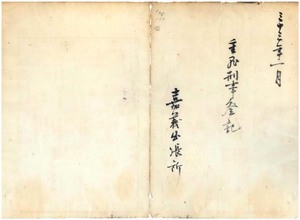 三十三年一月
刑事登記
嘉義出張所